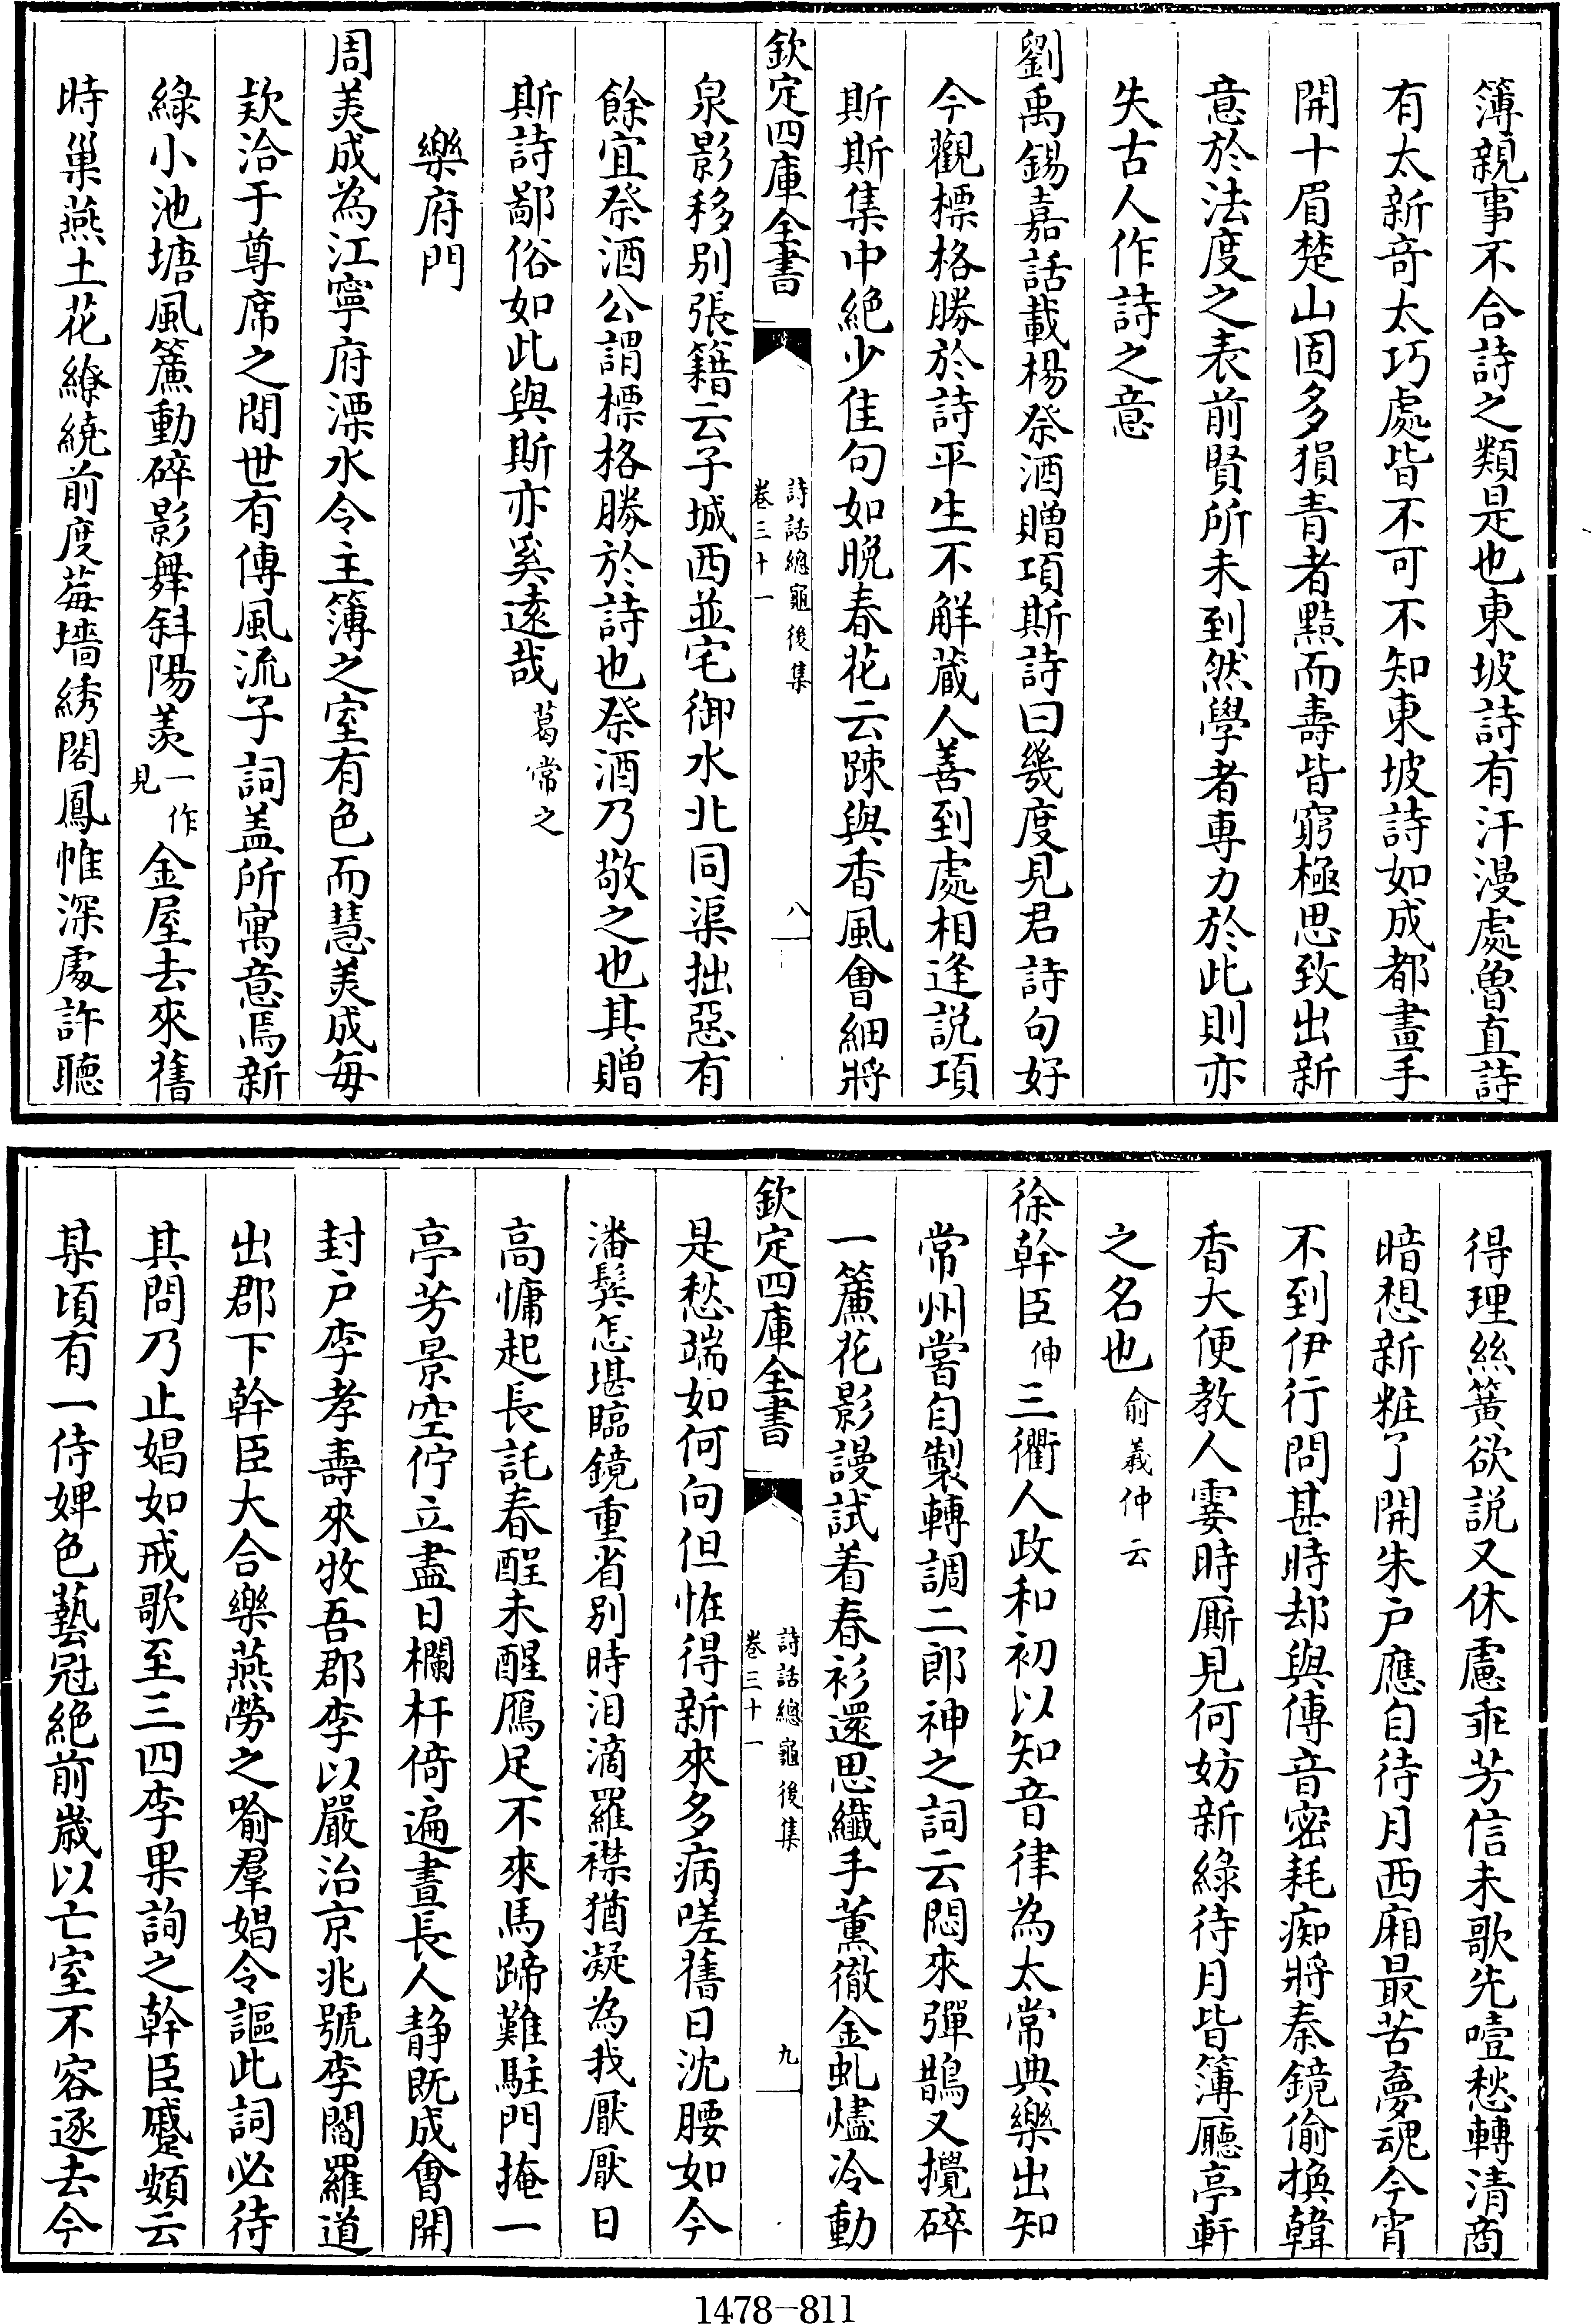 簿親事不合詩之類是也東坡詩有汗漫處魯直詩
有太新奇太巧處皆不可不知東坡詩如成都畫手
開十眉楚山固多猵青者黠而壽皆窮極思致出新
意於法度之表前賢所未到然學者專力於此則亦
失古人作詩之意
劉禹錫嘉話載楊祭酒贈項斯詩曰幾度見君詩句好
今觀標格勝於詩平生不解藏人善到處相逢説項
斯斯集中絶少佳句如晚春花云踈與香風會細將
欽定四庫全書
詩話總龜後集
卷三十一
八
泉影移别張籍云子城西並宅御水北同渠拙惡有
餘宜祭酒公謂標格勝於詩也祭酒乃敬之也其贈
斯詩鄙俗如此與斯亦奚遠哉葛常之
樂府門
周美成為江寧府溧水令主簿之室有色而慧美成每
欵洽于尊席之間世有傳風流子詞盖所寓意焉新
綠小池塘風簾動碎影舞斜陽羨一作見金屋去來舊
時巢燕土花繚繞前度莓墻綉閣鳳帷深處許聽
得理絲簧欲説又休慮乖芳信未歌先噎愁轉清商
暗想新粧了開朱户應自待月西廂最苦夢魂今宵
不到伊行問甚時却與傳音密耗痴將秦鏡偷換韓
香大便教人霎時厮見何妨新綠待月皆簿廳亭軒
之名也俞義仲云
徐幹臣伸三衢人政和初以知音律為太常典樂出知
常州嘗自製轉調二郎神之詞云悶來彈鵲又攪碎
一簾花影謾試着春衫還思纖手薫徹金虬燼冷動
欽定四庫全書
詩話總龜後集
卷三十一
九
是愁端如何向但恠得新來多病嗟舊日沈腰如今
潘鬢怎堪臨鏡重省别時泪滴羅襟猶凝為我厭厭日
高慵起長託春酲未醒鴈足不來馬蹄難駐門掩一
亭芳景空佇立盡日欄杆倚遍晝長人静既成會開
封户李孝壽來牧吾郡李以嚴治京兆號李閻羅道
出郡下幹臣大合樂燕勞之喻羣娼令謳此詞必待
其問乃止娼如戒歌至三四李果詢之幹臣蹙頞云
某頃有一侍婢色藝冠絶前嵗以亡室不容逐去今
1478—811